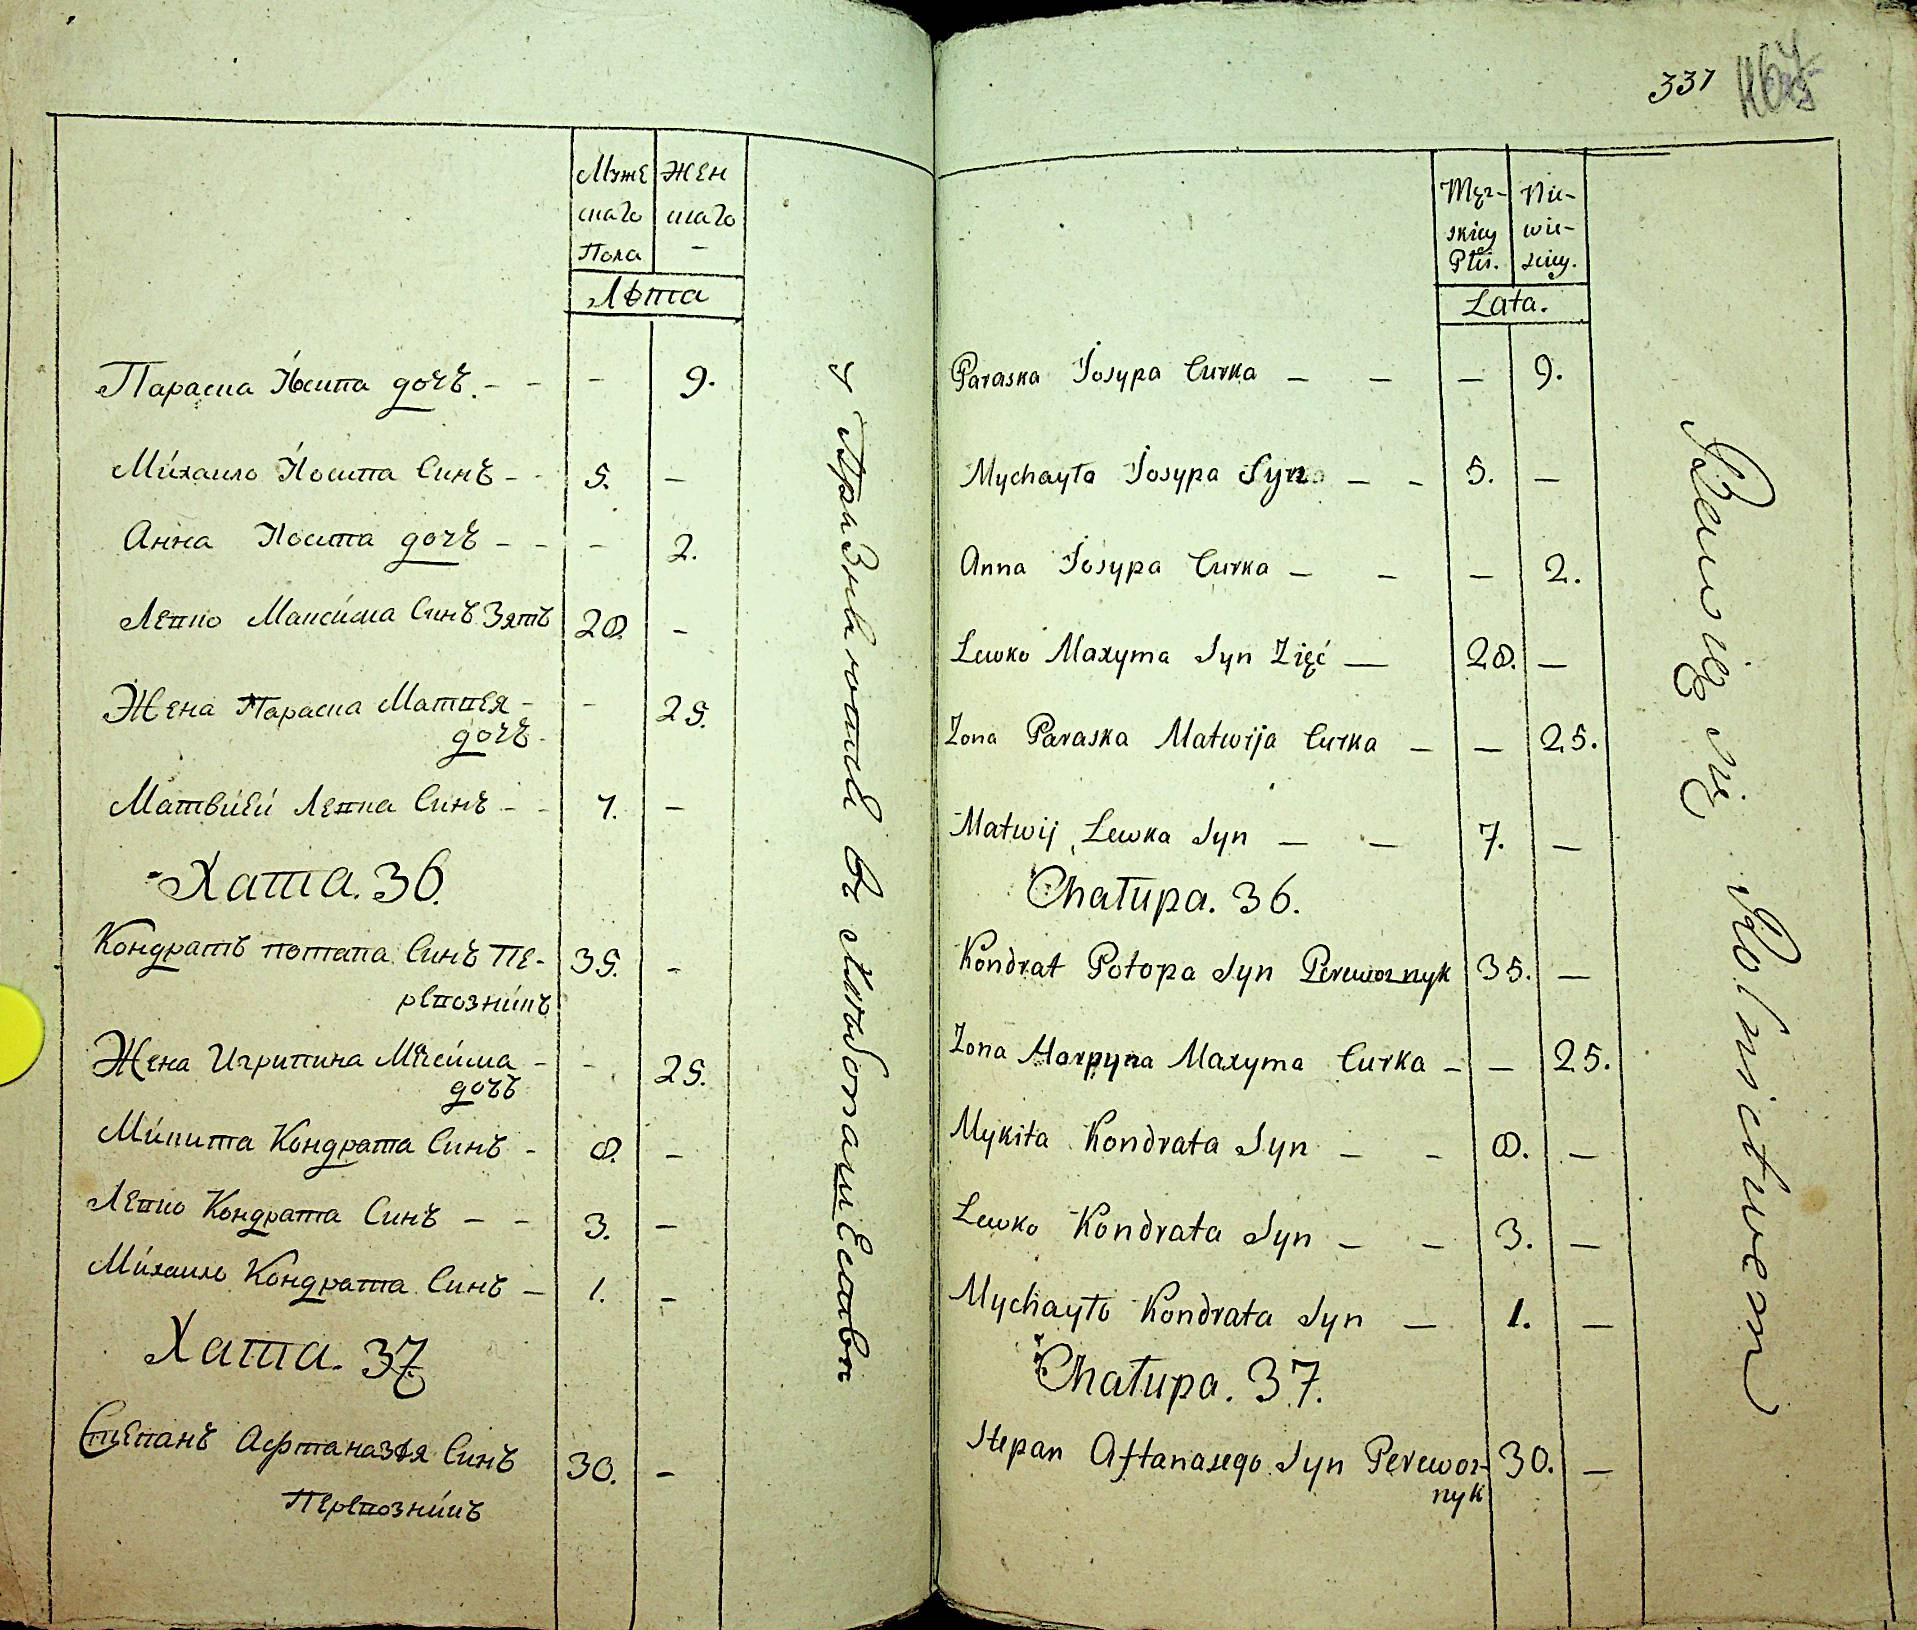 Муже
скаго
Пола
Жен
скаго
Лѣта
Параска Йосипа дочъ. - - - 9.
Михаило Йосипа Синъ - - 5. -
Анна Йосипа дочъ - - - 2.
Левко Максима Синъ Зять 28. -
Жена Параска Матвея - - 25.
дочъ -
Матвией Левка Синъ - - 7. -
Хата. 36.
Кондратъ Потапа Синъ Пе- 35. -
ревозникъ
Жена Игрипина Максима - - 25.
дочъ
Микита Кондрата Синъ - 8. -
Левко Кондрата Синъ - - 3. -
Михаило Кондрата Синъ - 1. -
Хата. 37.
Степанъ Афтаназѣя Синъ 30. -
Перевозникъ
в хлѣбопашествѣ
331
Męz-
skiey
Płci.
Nie-
wie-
sciey.
Lata.
Paraska Josypa Curka - - - 9.
Mychayło Josypa Syn - - 5. -
Anna Josypa Curka - - - 2.
Lewko Maxyma Syn Zięć - 28. -
Zona Paraska Matwija Curka - - 25.
Matwij Lewka Syn - - 7. -
Chałupa. 36.
Kondrat Potopa Syn Perewoznyk 35. -
Zona Horpyna Maxyma Curka - - 25.
Mykita Kondrata Syn - - 8. -
Lewko Kondrata Syn - - 3. -
Mychayło Kondrata Syn - 1. -
Chałupa. 37.
Stepan Aftanasego Syn Perewoz- 30. -
nyk
Bawią się Rolnictwem